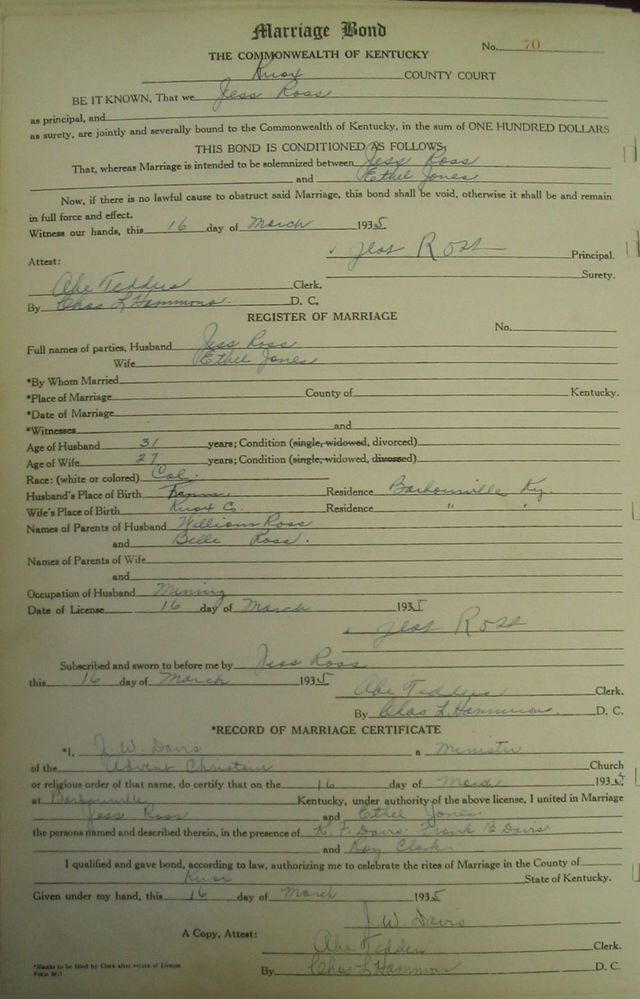 Marriage Bond
No. 70
THE COMMONWEALTH OF KENTUCKY
Knox COUNTY COURT
BE IT KNOWN, That we Jess Ross
as principal, and
as surety, are jointly and severally bound to the Commonwealth of Kentucky, in the sum of ONE HUNDRED DOLLARS
THIS BOND IS CONDITIONED AS FOLLOWS,
That, whereas Marriage is intended to be solemnized between Jess Ross
and Ethel Jones
Now, if there is no lawful cause to obstruct said Marriage, this bond shall be void, otherwise it shall be and remain
in full force and effect.
Witness our hands, this 16 day of March 1935
Jess Ross Principal.
Attest: Surety.
Abe Tedders Clerk.
By Chas L Hammons. D. C.
REGISTER OF MARRIAGE
No.
Full names of parties, Husband Jess Ross
Wife Ethel Jones
*By Whom Married
*Place of Marriage County of Kentucky.
*Date of Marriage
*Witnesses and
Age of Husband 31 years; Condition (single, widowed, divorced)
Age of Wife 27 years; Condition (single, widowed, divorced)
Race: (white or colored) Col.
Husband's Place of Birth Tenn Residence Barbourville Ky.
Wife's Place of Birth Knox Co. Residence " "
Names of Parents of Husband William Ross
and Belle Ross.
Names of Parents of Wife
and
Occupation of Husband Mining
Date of License 16 day of March 1935
Jess Ross
Subscribed and sworn to before me by Jess Ross
this 16 day of March 1935
Abe Tedders Clerk.
By Chas L Hammons. D. C.
*RECORD OF MARRIAGE CERTIFICATE
*I, J. W. Davis a Minister
of the Advent Christain Church
or religious order of that name, do certify that on the 16 day of March 1935
at Barbourville Kentucky, under authority of the above license, I united in Marriage
Jess Ross and Ethel Jones
the persons named and described therein, in the presence of K. F. Davis Frank B Davis
and Roy Clark
I qualified and gave bond, according to law, authorizing me to celebrate the rites of Marriage in the County of
Knox State of Kentucky.
Given under my hand, this 16 day of March 1935
J. W. Davis
A Copy, Attest: Abe Tedders Clerk.
*Blanks to be filled by Clerk after return of License
Form M-7
By Chas L Hammons D. C.